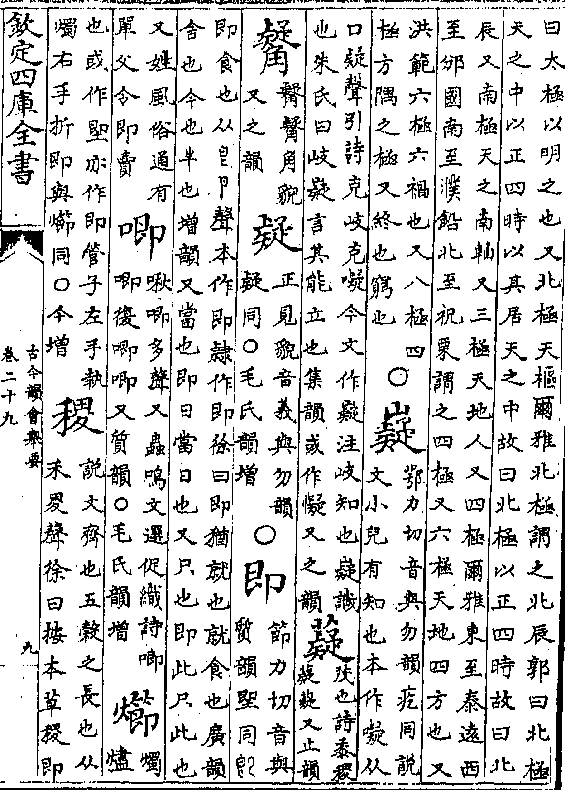 曰太極以明之也又北極天樞爾雅北極謂之北辰郭曰北極
天之中以正四時以其居天之中故曰北極以正四時故曰北
辰又南極天之南軸又三極天地人又四極爾雅東至泰遠西
至邠國南至濮鈆北至祝栗謂之四極又六極天地四方也又
洪範六極六禍也又八極四
極方隅之極又終也窮也
○嶷
鄂力切音與勿韻疙同說
文小兒有知也本作㘈从
口疑聲引詩克岐克㘈今文作嶷注岐知也嶷識
也朱氏曰岐嶷言其能立也集韻或作懝又之韻
薿
茂也詩黍稷
薿薿又止韻
觺
觺觺角貌
又之韻
疑
正見貌音義與勿韻
疑同○毛氏韻增
○即
節力切音與
質韻堲同
即食也从皀卪聲本作即隷作即徐曰即猶就也就食也廣韻
舍也今也半也增韻又當也即曰當日也又只也即此只此也
又姓風俗通有
單父令即賣
唧
啾唧多聲又蟲鳴文選促織詩唧
唧復唧唧又質韻○毛氏韻增
㘉
燭燼
也或作堲亦作即管子左手執
燭右手折即與㘉同○今增
稷
說文齊也五糓之長也从
禾畟聲徐曰按本草稷即
欽定四庫全書
古今韻會舉要
卷二十九
九